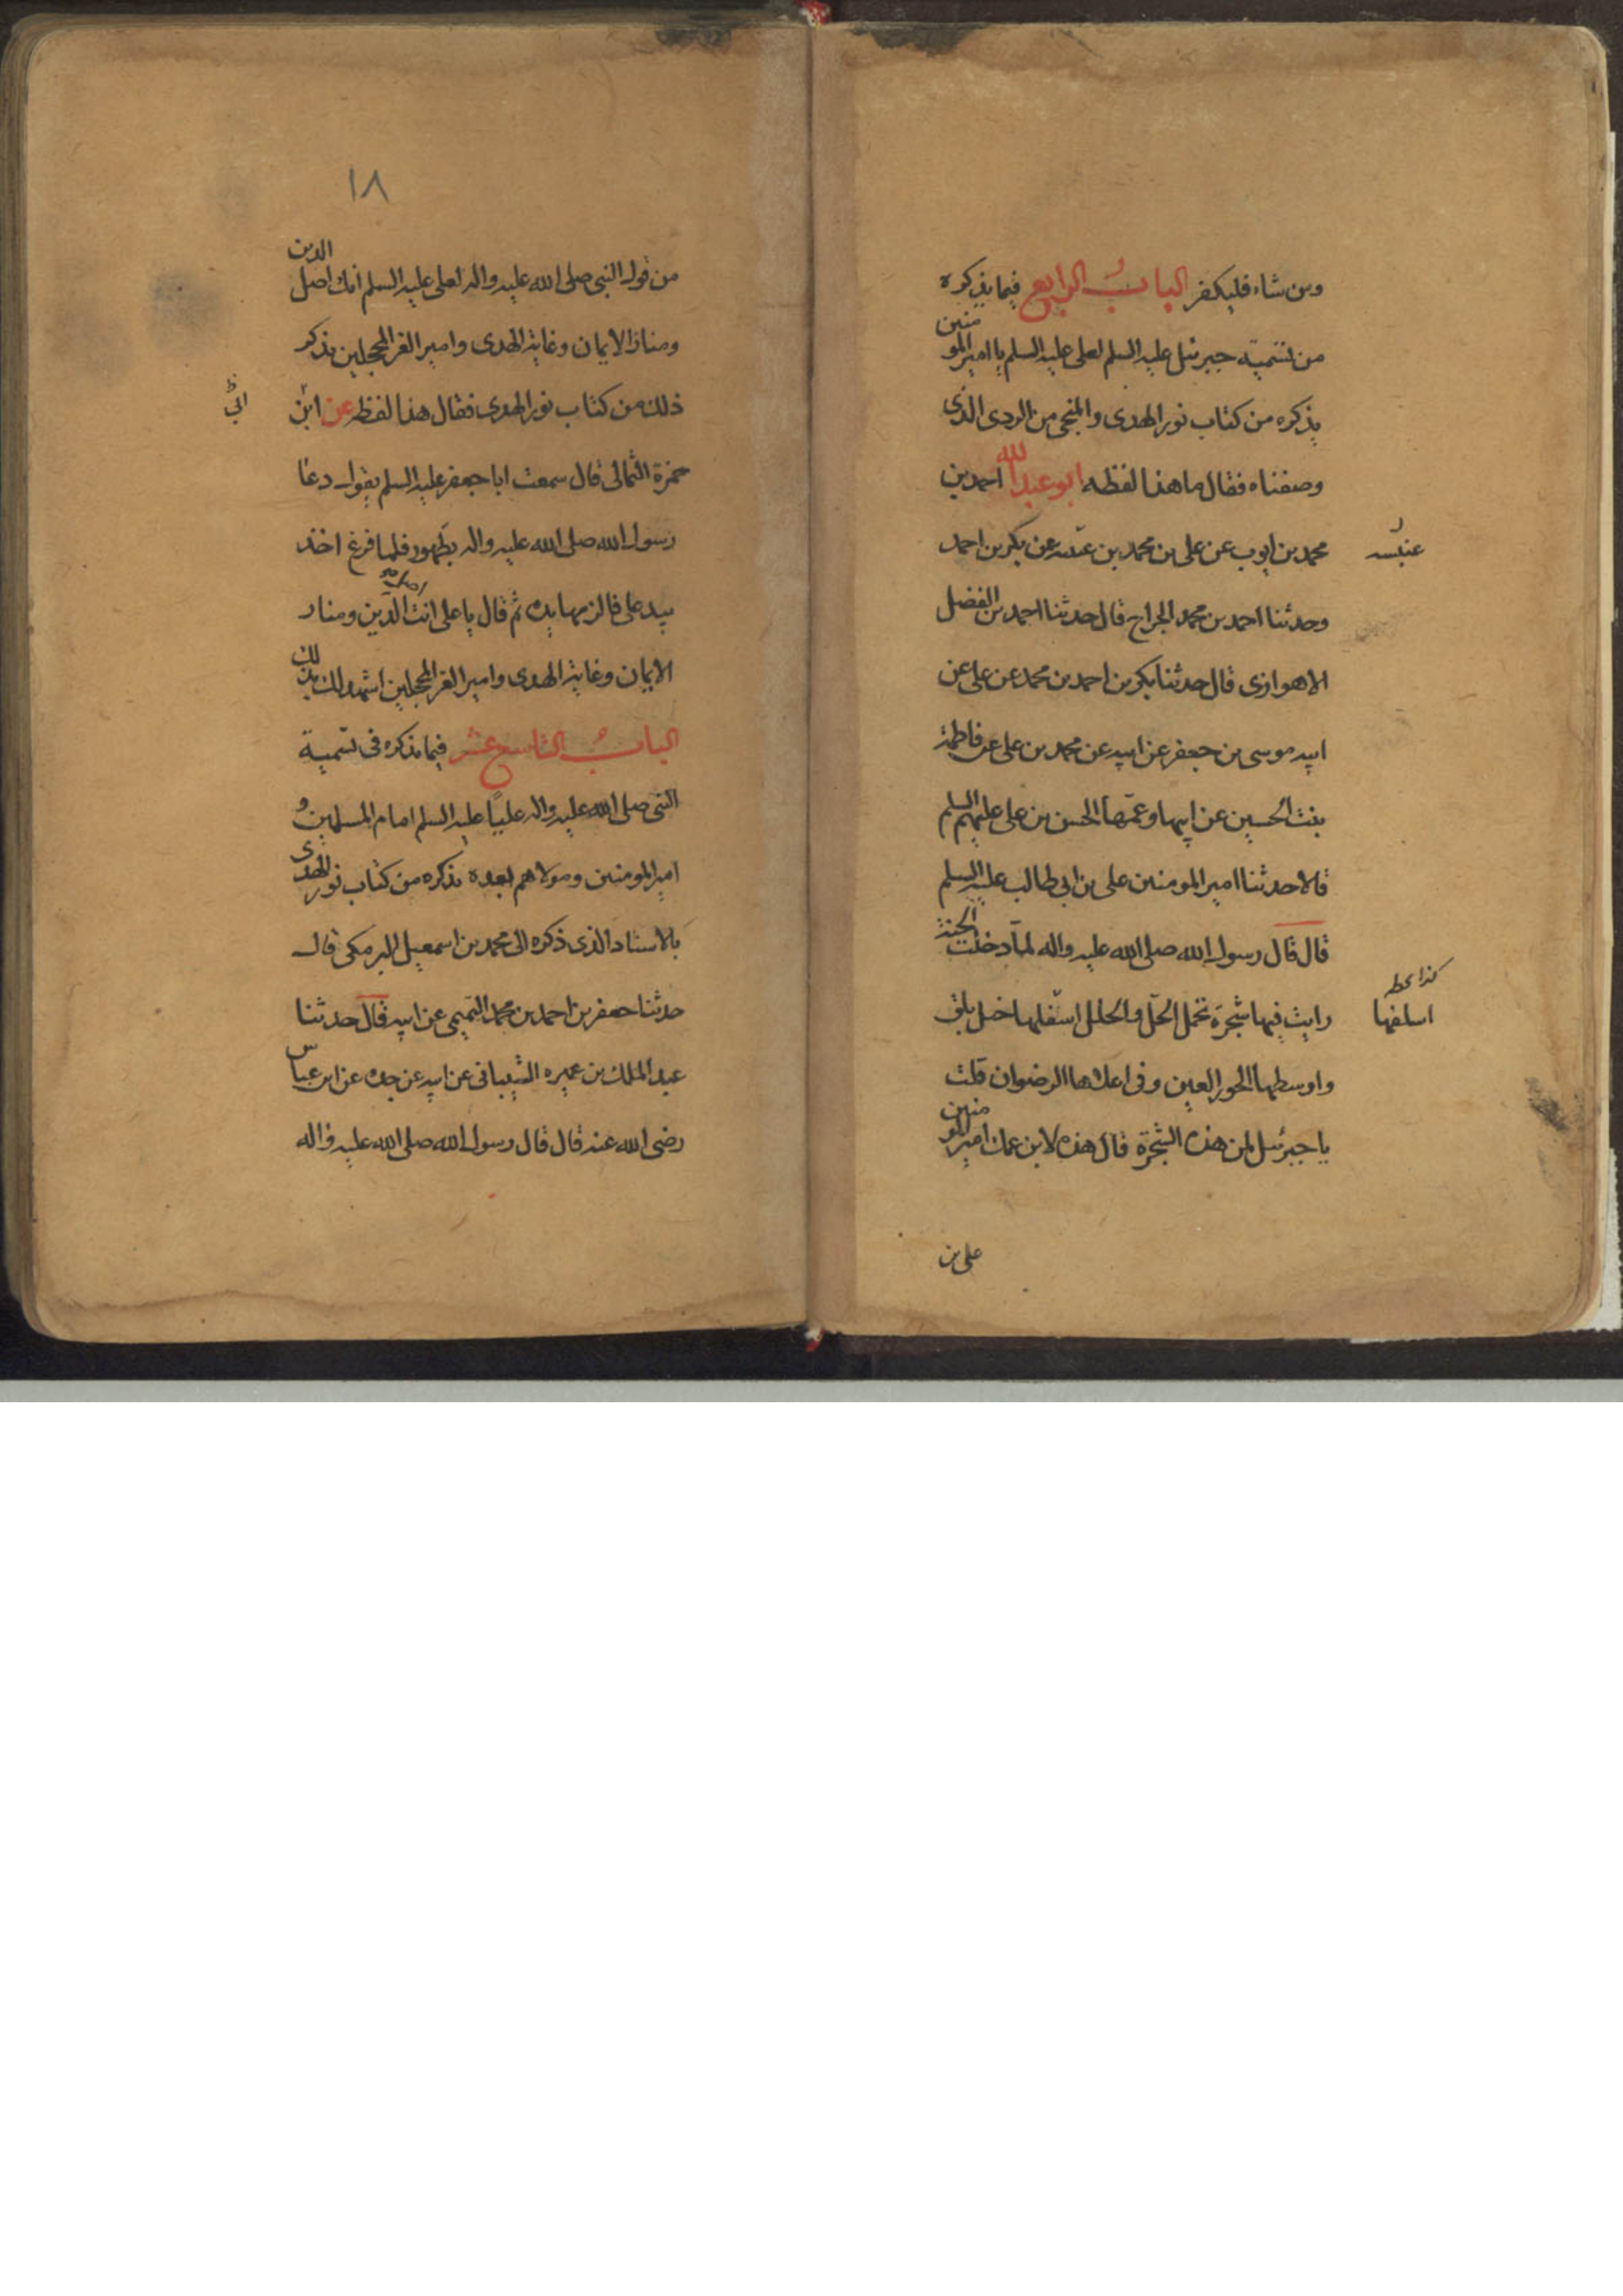 ومن شاء فليكفر الباب الرابع فيما نذكره
من تسمية جبرئيل عليه السلم لعلى عليه السلم يا امير المومنين
نذكره من كتاب نور الهدى والمنجى من الردى الذى
وصفناه فقال ما هذا لفظه ابو عبد الله احمد بن
محمد بن ايوب عن على بن محمد بن عنبسه عن بكر بن احمد
عنبسه
وحدثنا احمد بن محمد الجراح قال حدثنا احمد بن الفضل
الاهوازى قال حدثنا بكر بن احمد بن محمد عن على عن
ابيه موسى بن جعفر عن ابيه عن محمد بن على عن فاطمة
بنت الحسين عن ابيها وعمها الحسن بن على عليهم السلم
قالا حدثنا امير المومنين على بن ابى طالب عليه السلم
قال قال رسول الله صلى الله عليه واله لما دخلت الجنة
رايت فيها شجرة تحمل الحلى والحلل اسفلها خيل بلق
كذا بخطه
اسلفها
واوسطها الحور العين وفى اعلاها الرضوان قلت
يا جبرئيل لمن هذه الشجرة قال هذه لابن عمك امير المومنين
على بن
١٨
من قول النبى صلى الله عليه واله لعلى عليه السلم انك اصل الدين
ومنار الايمان وغاية الهدى وامير الغر المحجلين نذكر
ذلك من كتاب نور الهدى فقال هذا لفظه عن ابن
ابى
حمزة الثمالى قال سمعت ابا جعفر عليه السلم يقول دعا
رسول الله صلى الله عليه واله بطهور فلما فرغ اخذ
بيد على فالزمها يده ثم قال يا على انت اصل الدين ومنار
الايمان وغاية الهدى وامير الغر المحجلين اشهد لك بذلك
الباب التاسع عشر فيما نذكره فى تسمية
النبى صلى الله عليه واله عليا عليه السلم امام المسلمين و
امير المومنين ومولاهم بعده نذكره من كتاب نور الهدى
بالاسناد الذى ذكره الى محمد بن اسمعيل البرمكى قال
حدثنا جعفر بن احمد بن محمد التميمى عن ابيه قال حدثنا
عبد الملك بن عميره الشيبانى عن ابيه عن جده عن ابن عباس
رضى الله عنه قال قال رسول الله صلى الله عليه واله